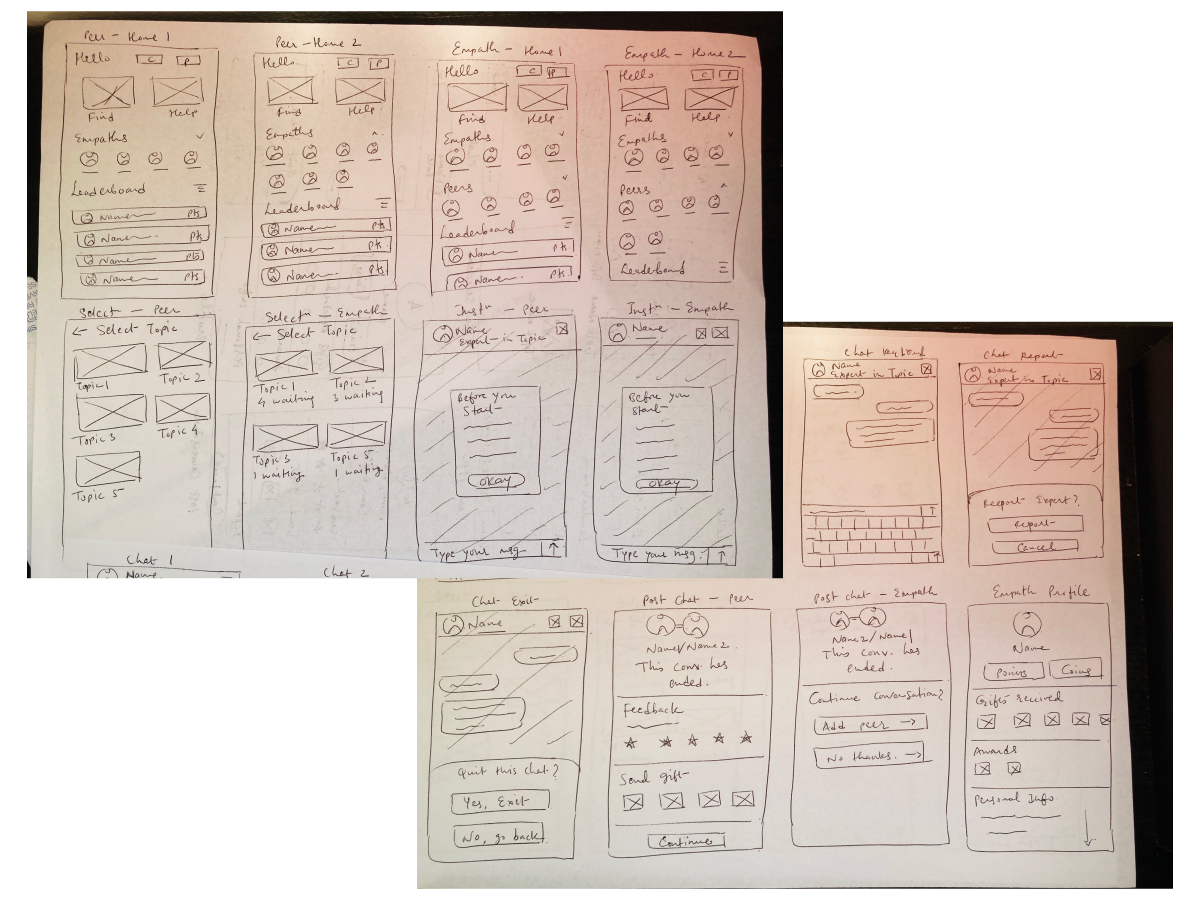 Peer - Home 1
Hello C P
Find Help
Empaths
Leaderboard
Name Pts
Name Pts
Name Pts
Name Pts
Peer - Home 2
Hello C P
Find Help
Empaths
Leaderboard
Name Pts
Name Pts
Name Pts
Empath - Home 1
Hello C P
Find Help
Empaths
Peers
Leaderboard
Name Pts
Name Pts
Empath - Home 2
Hello C P
Find Help
Empaths
Peers
Leaderboard
Select - Peer
← Select Topic
Topic 1 Topic 2
Topic 3 Topic 4
Topic 5
Selectn - Empath
← Select Topic
Topic 1 Topic 2
4 waiting 3 waiting
Topic 3 Topic 5
1 waiting 1 waiting
Instn - Peer
Name
Expert in Topic
Before you
Start
okay
Type your msg ↑
Instn - Empath
Name
Before you
Start
okay
Type your msg. ↑
Chat 1
Name
Chat 2
Chat Keyboard
Name
Expert in Topic
Chat Report
Name
Expert in Topic
Reeport Expert?
Report
Cancel
Chat Exit
Name
Quit this chat?
Yes, Exit
No, go back
Post Chat - Peer
Name1/Name2.
This Conv. has
ended.
Feedback
Send gift
Continue
Post chat - Empath
Name2/Name1
This Conv. has
ended.
Continue conversation?
Add peer →
No thanks. →
Empath Profile
Name
Points Coins
Gifts recived
Awards
Personal Info